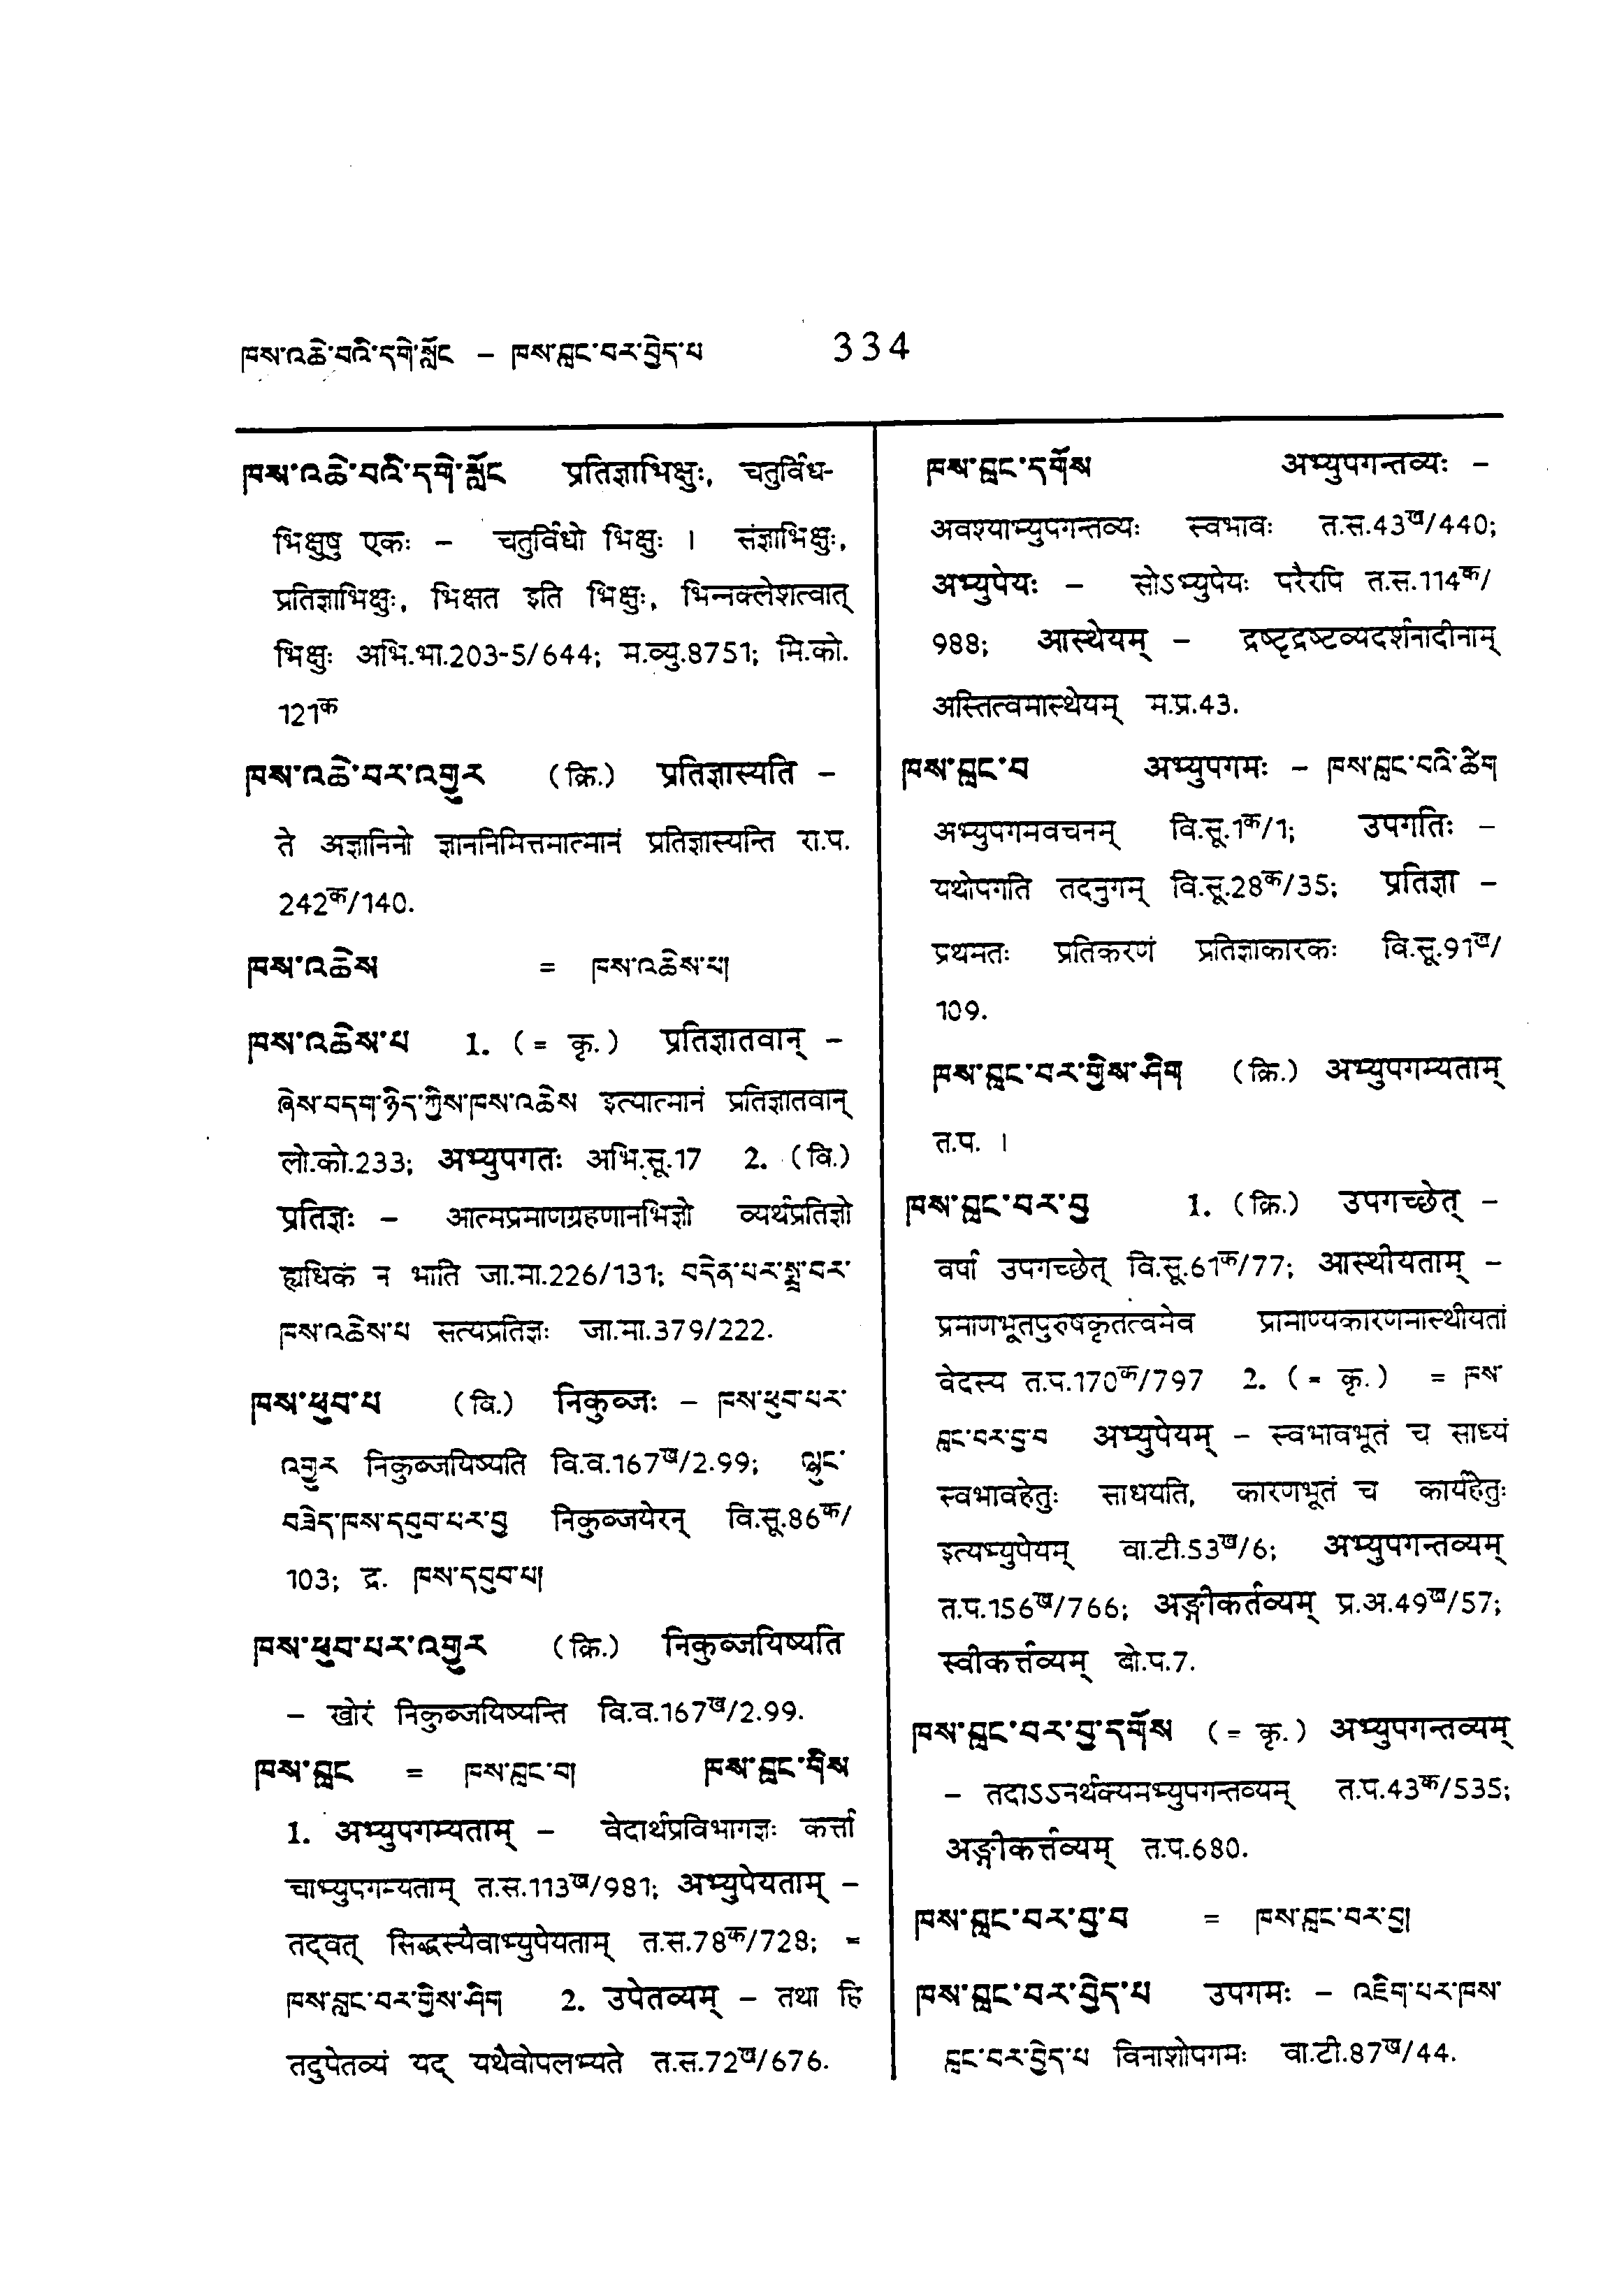 ཁས་འཆེ་བའི་དགེ་སློང – ཁས་བླང་བར་བྱེད་པ 334
ཁས་འཆེ་བའི་དགེ་སློང प्रतिज्ञाभिक्षुः, चतुर्विध-
भिक्षुषु एकः – चतुर्विधो भिक्षुः । संज्ञाभिक्षुः,
प्रतिज्ञाभिक्षुः, भिक्षत इति भिक्षुः, भिन्नक्लेशत्वात्
भिक्षुः अभि.भा.203-5/644; म.व्यु.8751; मि.को.
121क
ཁས་འཆེ་བར་འགྱུར (क्रि.) प्रतिज्ञास्यति –
ते अज्ञानिनो ज्ञाननिमित्तमात्मानं प्रतिज्ञास्यन्ति रा.प.
242क/140.
ཁས་འཆེས = ཁས་འཆེས་པ།
ཁས་འཆེས་པ 1. (= कृ.) प्रतिज्ञातवान् –
ཞེས་བདག་ཉིད་ཀྱིས་ཁས་འཆེས इत्यात्मानं प्रतिज्ञातवान्
लो.को.233; अभ्युपगतः अभि.सू.17 2. (वि.)
प्रतिज्ञः – आत्मप्रमाणग्रहणानभिज्ञो व्यर्थप्रतिज्ञो
ह्यधिकं न भाति जा.मा.226/131; བདེན་པར་སྨྲ་བར་
ཁས་འཆེས་པ सत्यप्रतिज्ञः जा.मा.379/222.
ཁས་ཕུབ་པ (वि.) निकुब्जः – ཁས་ཕུབ་པར་
འགྱུར निकुब्जयिष्यति वि.व.167ख/2.99; ལྷུང་
བཟེད་ཁས་དབུབ་པར་བྱ निकुब्जयेरन् वि.सू.86क/
103; द्र. ཁས་དབུབ་པ།
ཁས་ཕུབ་པར་འགྱུར (क्रि.) निकुब्जयिष्यति
– खोरं निकुब्जयिष्यन्ति वि.व.167ख/2.99.
ཁས་བླང = ཁས་བླང་བ། ཁས་བླང་གིས
1. अभ्युपगम्यताम् – वेदार्थप्रविभागज्ञः कर्त्ता
चाभ्युपगम्यताम् त.स.113ख/981; अभ्युपेयताम् –
तद्वत् सिद्धस्यैवाभ्युपेयताम् त.स.78क/728; =
ཁས་བླང་བར་གྱིས་ཤིག 2. उपेतव्यम् – तथा हि
तदुपेतव्यं यद् यथैवोपलभ्यते त.स.72ख/676.
ཁས་བླང་དགོས अभ्युपगन्तव्यः –
अवश्याभ्युपगन्तव्यः स्वभावः त.स.43ख/440;
अभ्युपेयः – सोऽभ्युपेयः परैरपि त.स.114क/
988; आस्थेयम् – द्रष्टृद्रष्टव्यदर्शनादीनाम्
अस्तित्वमास्थेयम् म.प्र.43.
ཁས་བླང་བ अभ्युपगमः – ཁས་བླང་བའི་ཚིག
अभ्युपगमवचनम् वि.सू.1क/1; उपगतिः –
यथोपगति तदनुगम् वि.सू.28क/35; प्रतिज्ञा –
प्रथमतः प्रतिकरणं प्रतिज्ञाकारकः वि.सू.91ख/
109.
ཁས་བླང་བར་གྱིས་ཤིག (क्रि.) अभ्युपगम्यताम्
त.प. ।
ཁས་བླང་བར་བྱ 1. (क्रि.) उपगच्छेत् –
वर्षा उपगच्छेत् वि.सू.61क/77; आस्थीयताम् –
प्रमाणभूतपुरुषकृतत्वमेव प्रामाण्यकारणमास्थीयतां
वेदस्य त.प.170क/797 2. (= कृ.) = ཁས་
བླང་བར་བྱ་བ अभ्युपेयम् – स्वभावभूतं च साध्यं
स्वभावहेतुः साधयति, कारणभूतं च कार्यहेतुः
इत्यभ्युपेयम् वा.टी.53ख/6; अभ्युपगन्तव्यम्
त.प.156ख/766; अङ्गीकर्तव्यम् प्र.अ.49ख/57;
स्वीकर्त्तव्यम् बो.प.7.
ཁས་བླང་བར་བྱ་དགོས (= कृ.) अभ्युपगन्तव्यम्
– तदाऽऽनर्थक्यमभ्युपगन्तव्यम् त.प.43क/535;
अङ्गीकर्त्तव्यम् त.प.680.
ཁས་བླང་བར་བྱ་བ = ཁས་བླང་བར་བྱ།
ཁས་བླང་བར་བྱེད་པ उपगमः – འཇིག་པར་ཁས་
བླང་བར་བྱེད་པ विनाशोपगमः वा.टी.87ख/44.